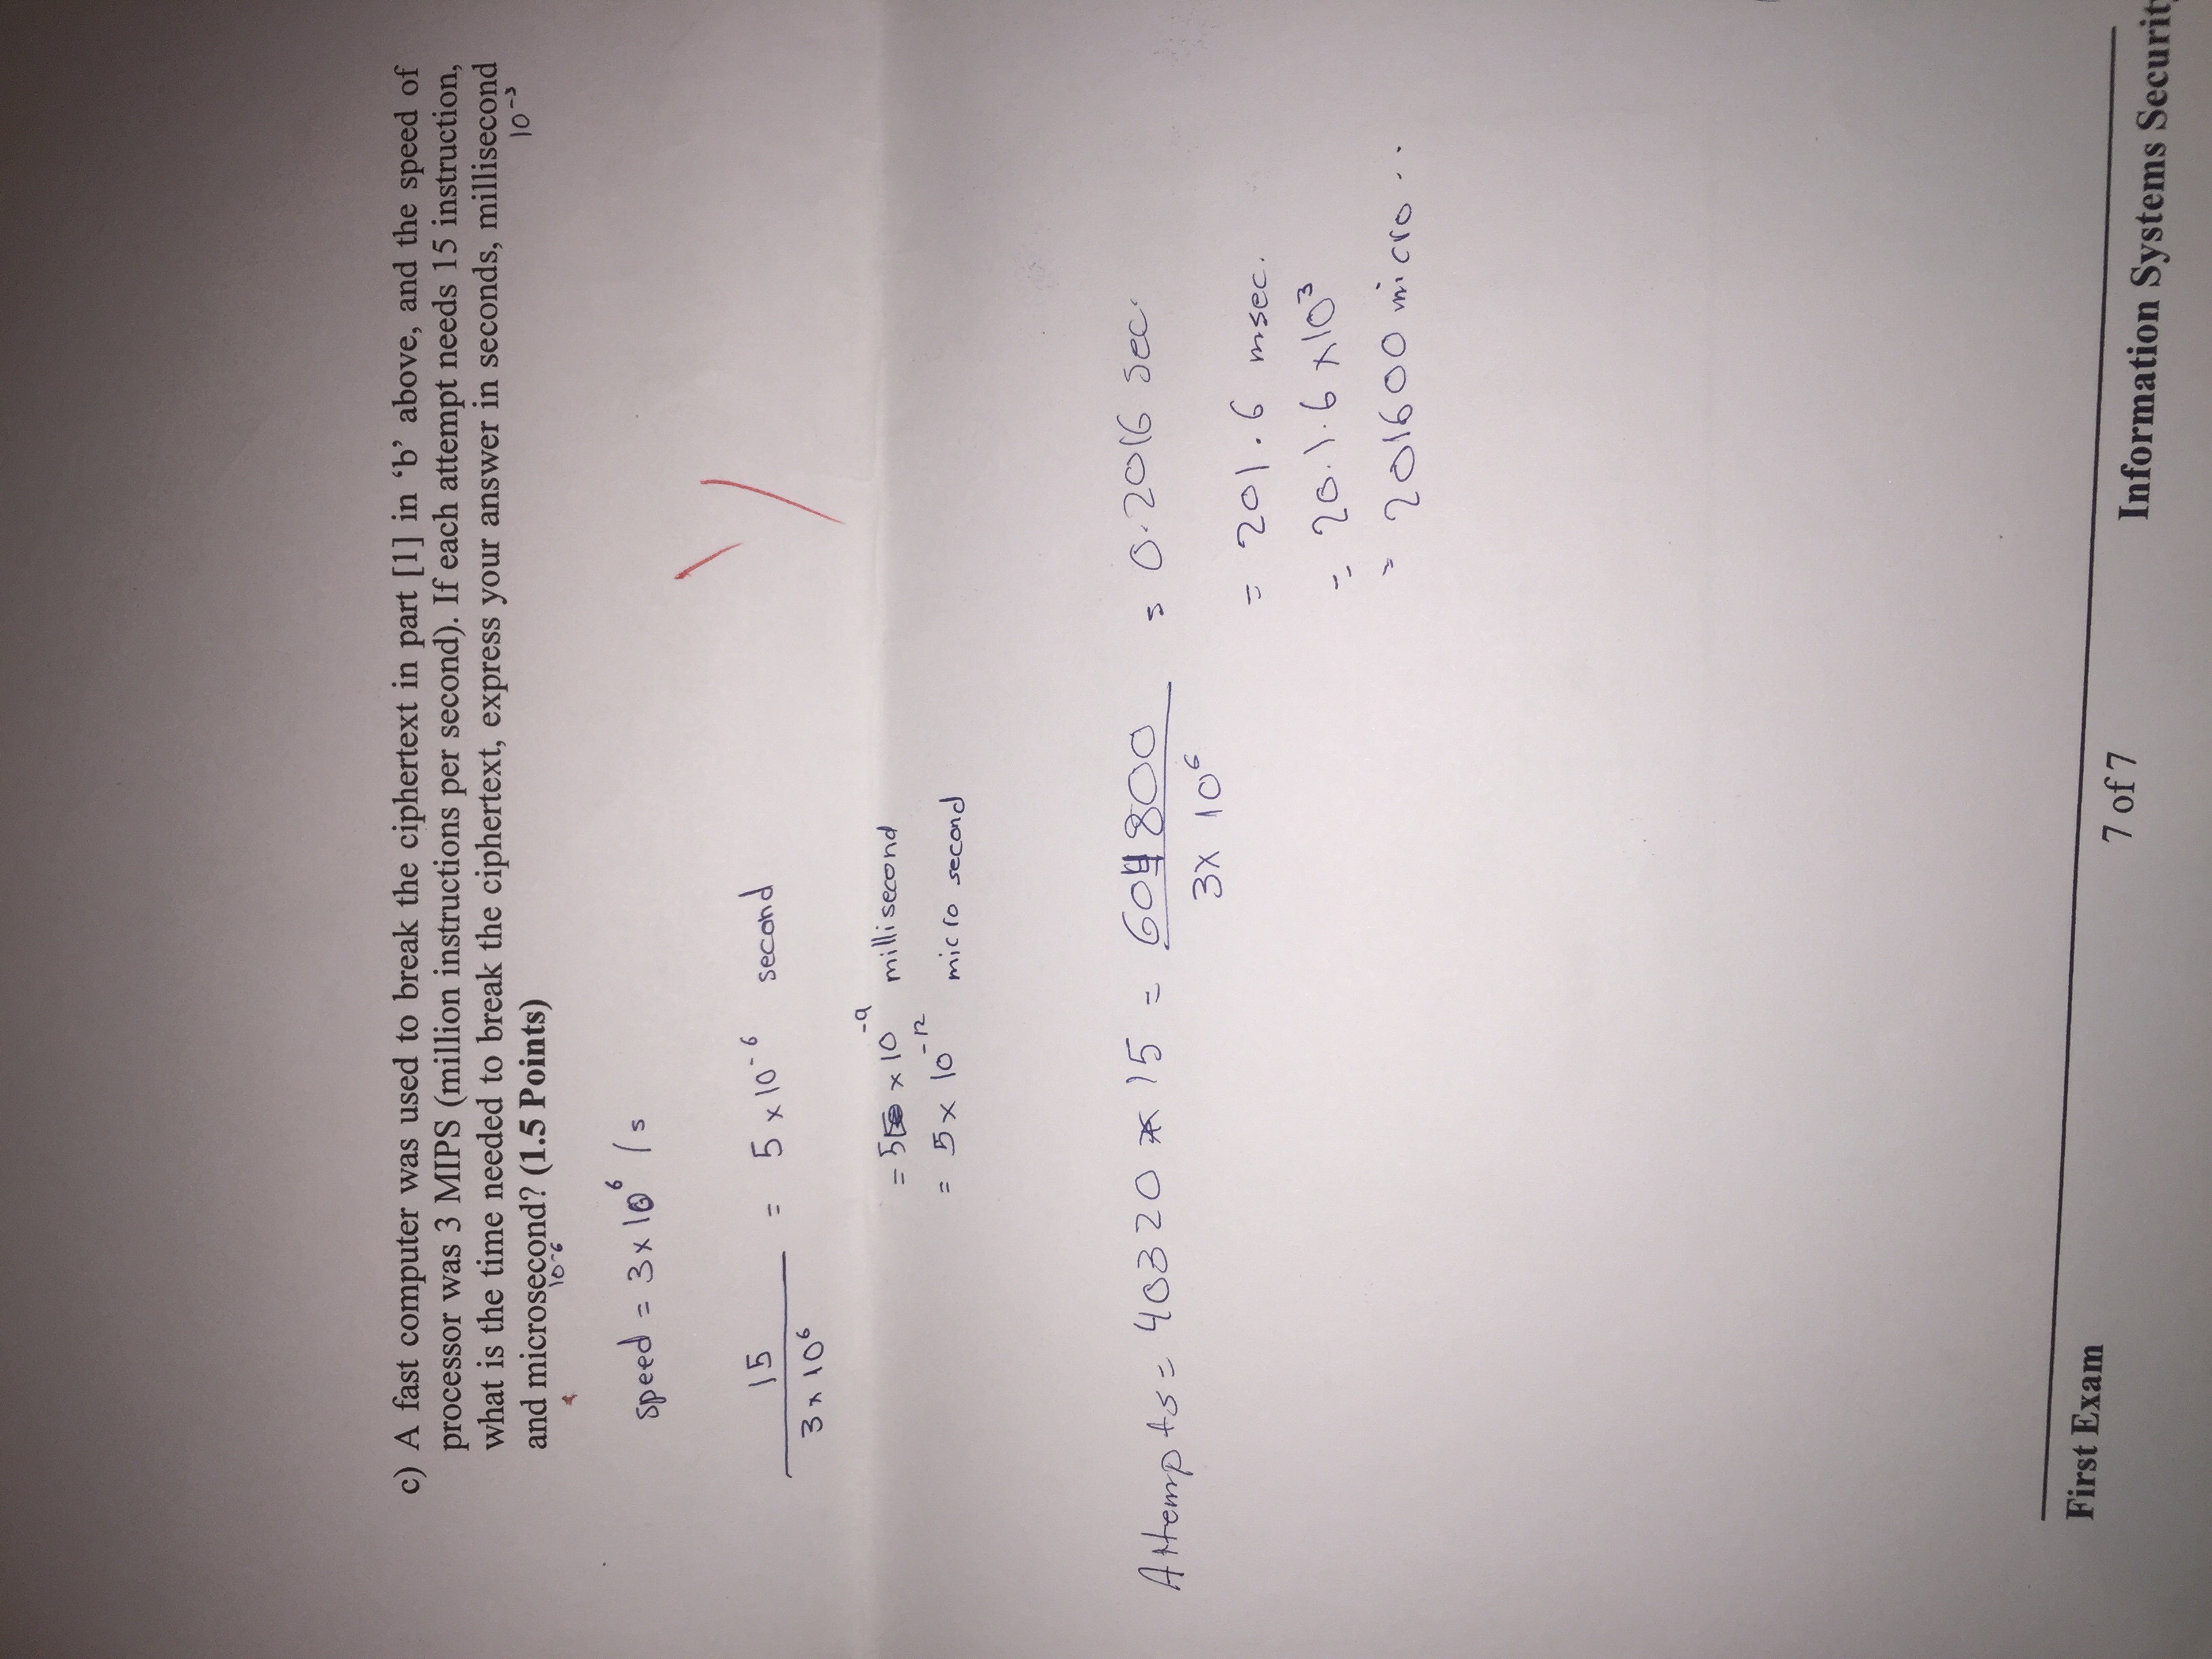 c) A fast computer was used to break the ciphertext in part [1] in ‘b’ above, and the speed of
processor was 3 MIPS (million instructions per second). If each attempt needs 15 instruction,
what is the time needed to break the ciphertext, express your answer in seconds, millisecond
10⁻³
and microsecond? (1.5 Points)
10⁻⁶
speed = 3 x 10⁶ / s
15
= 5 x 10⁻⁶ second
3 x 10⁶
= 5 x 10⁻⁹ millisecond
= 5 x 10⁻¹² micro second
Attempts = 40320 * 15 = 604800 = 0.2016 sec.
3x 10⁶
= 201.6 msec.
= 20.1.6 x10³
= 201600 micro ..
First Exam
7 of 7
Information Systems Security